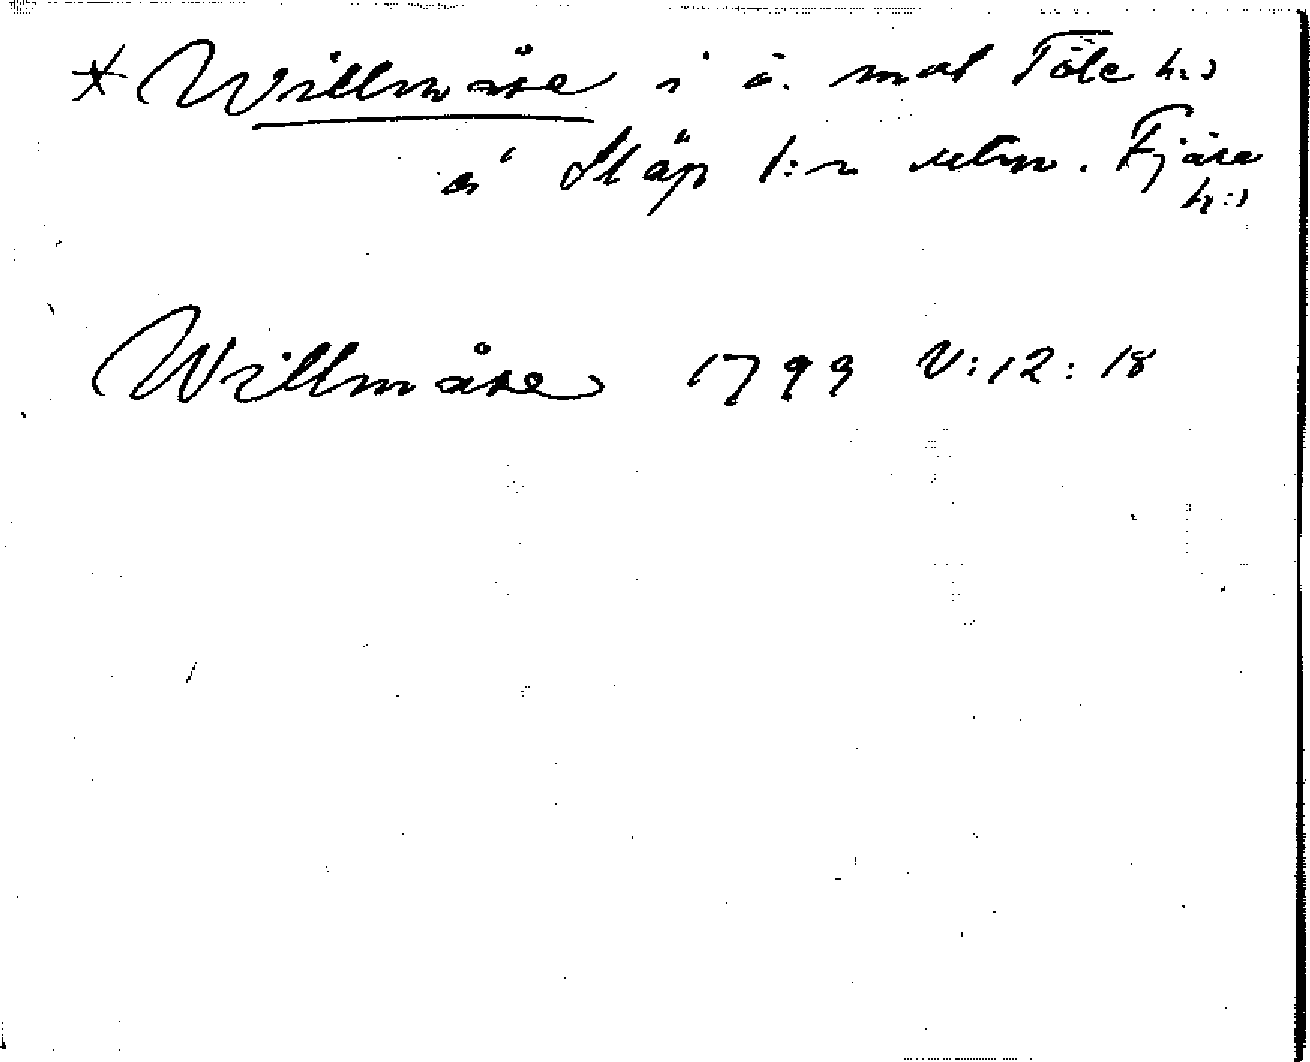 * Willmåse i ö. mot Töle h:d
å Släp 1:r utm. Fjäre
h:d
Willmåse 1799 V:12:18